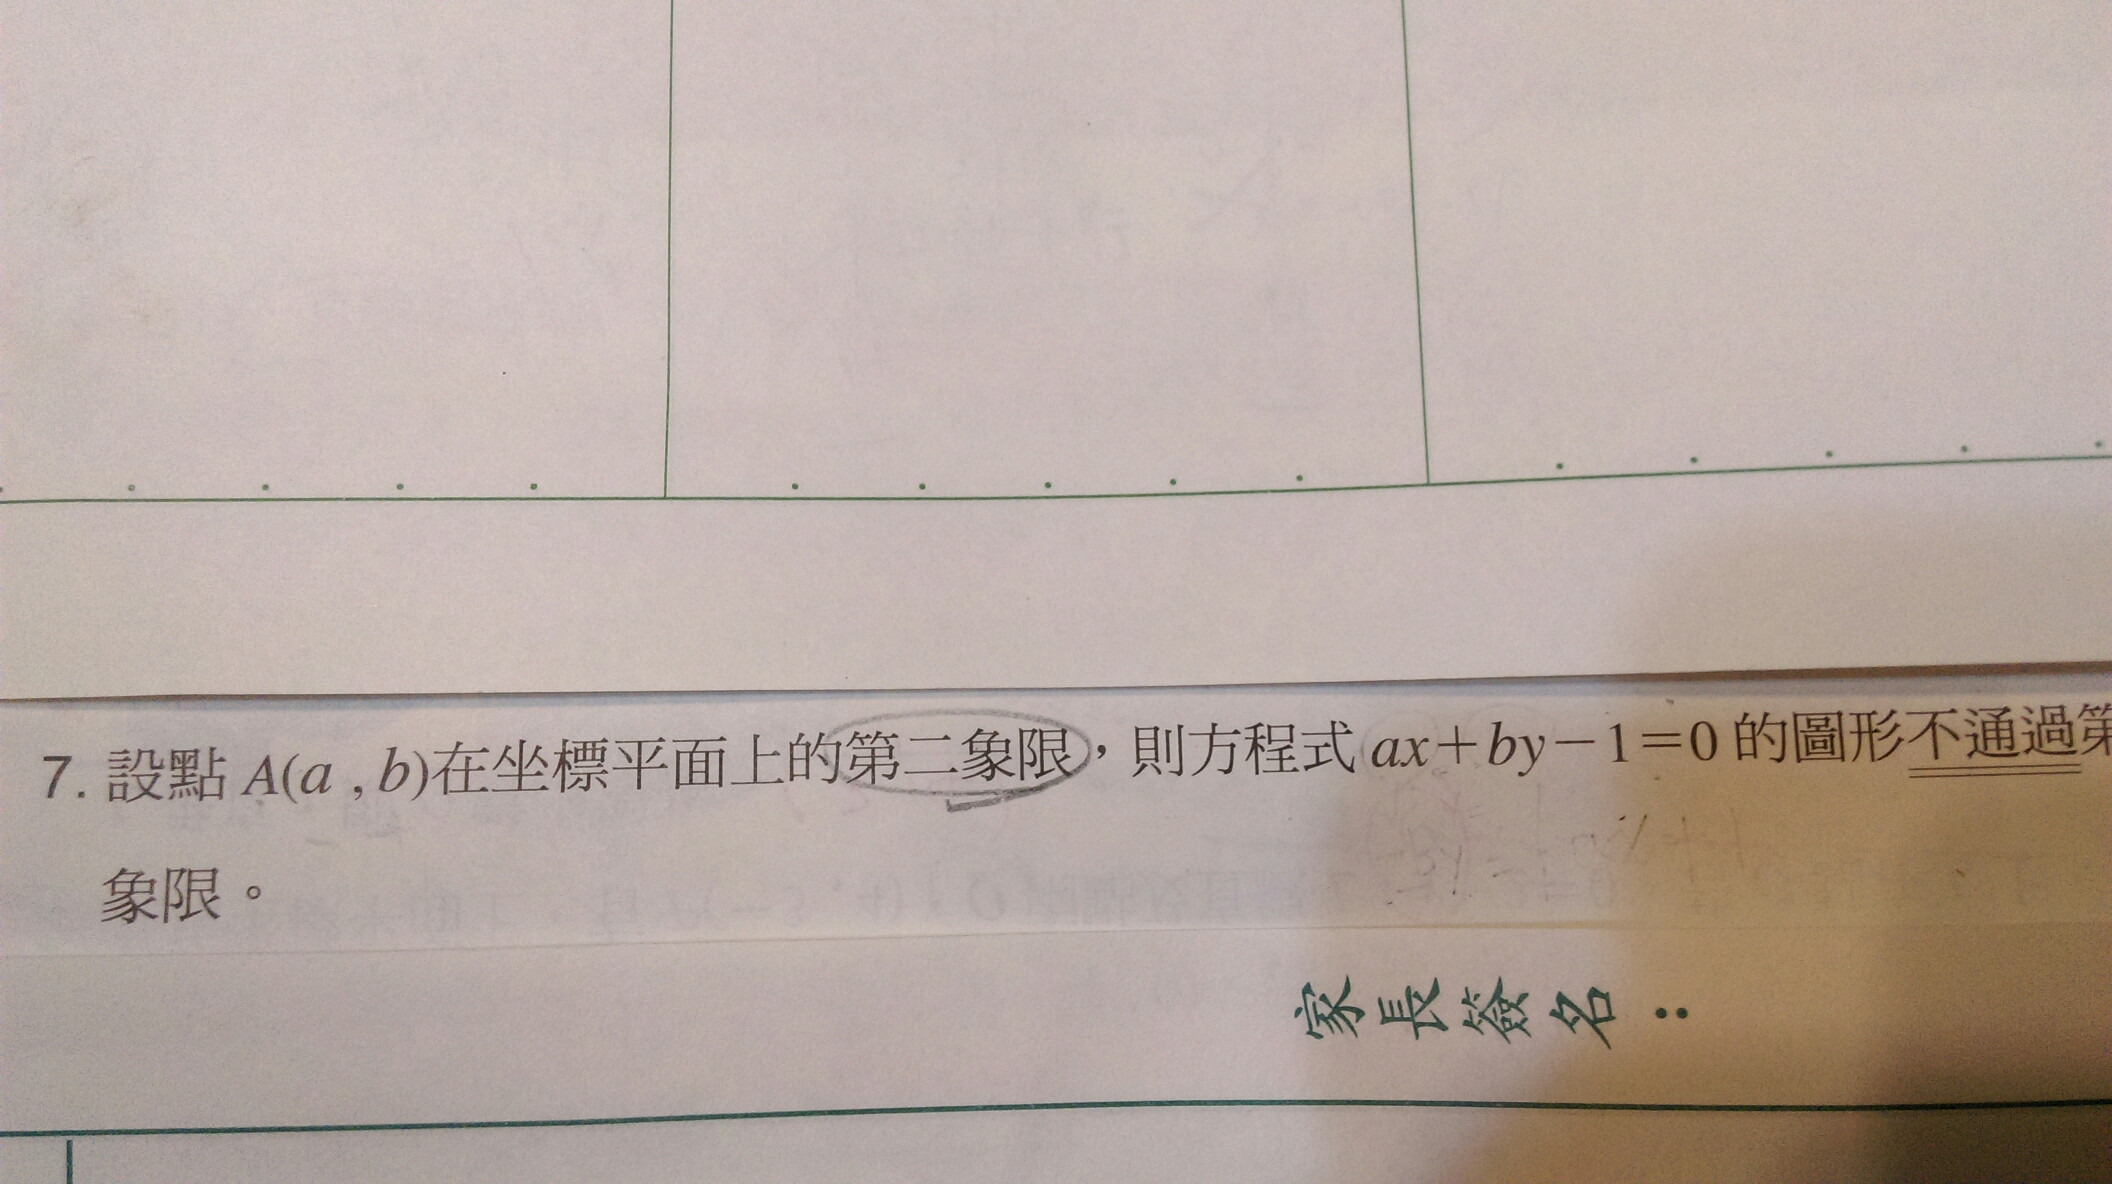 7. 設點 A(a , b)在坐標平面上的第二象限，則方程式 ax＋by－1＝0 的圖形不通過第
象限。
家長簽名：